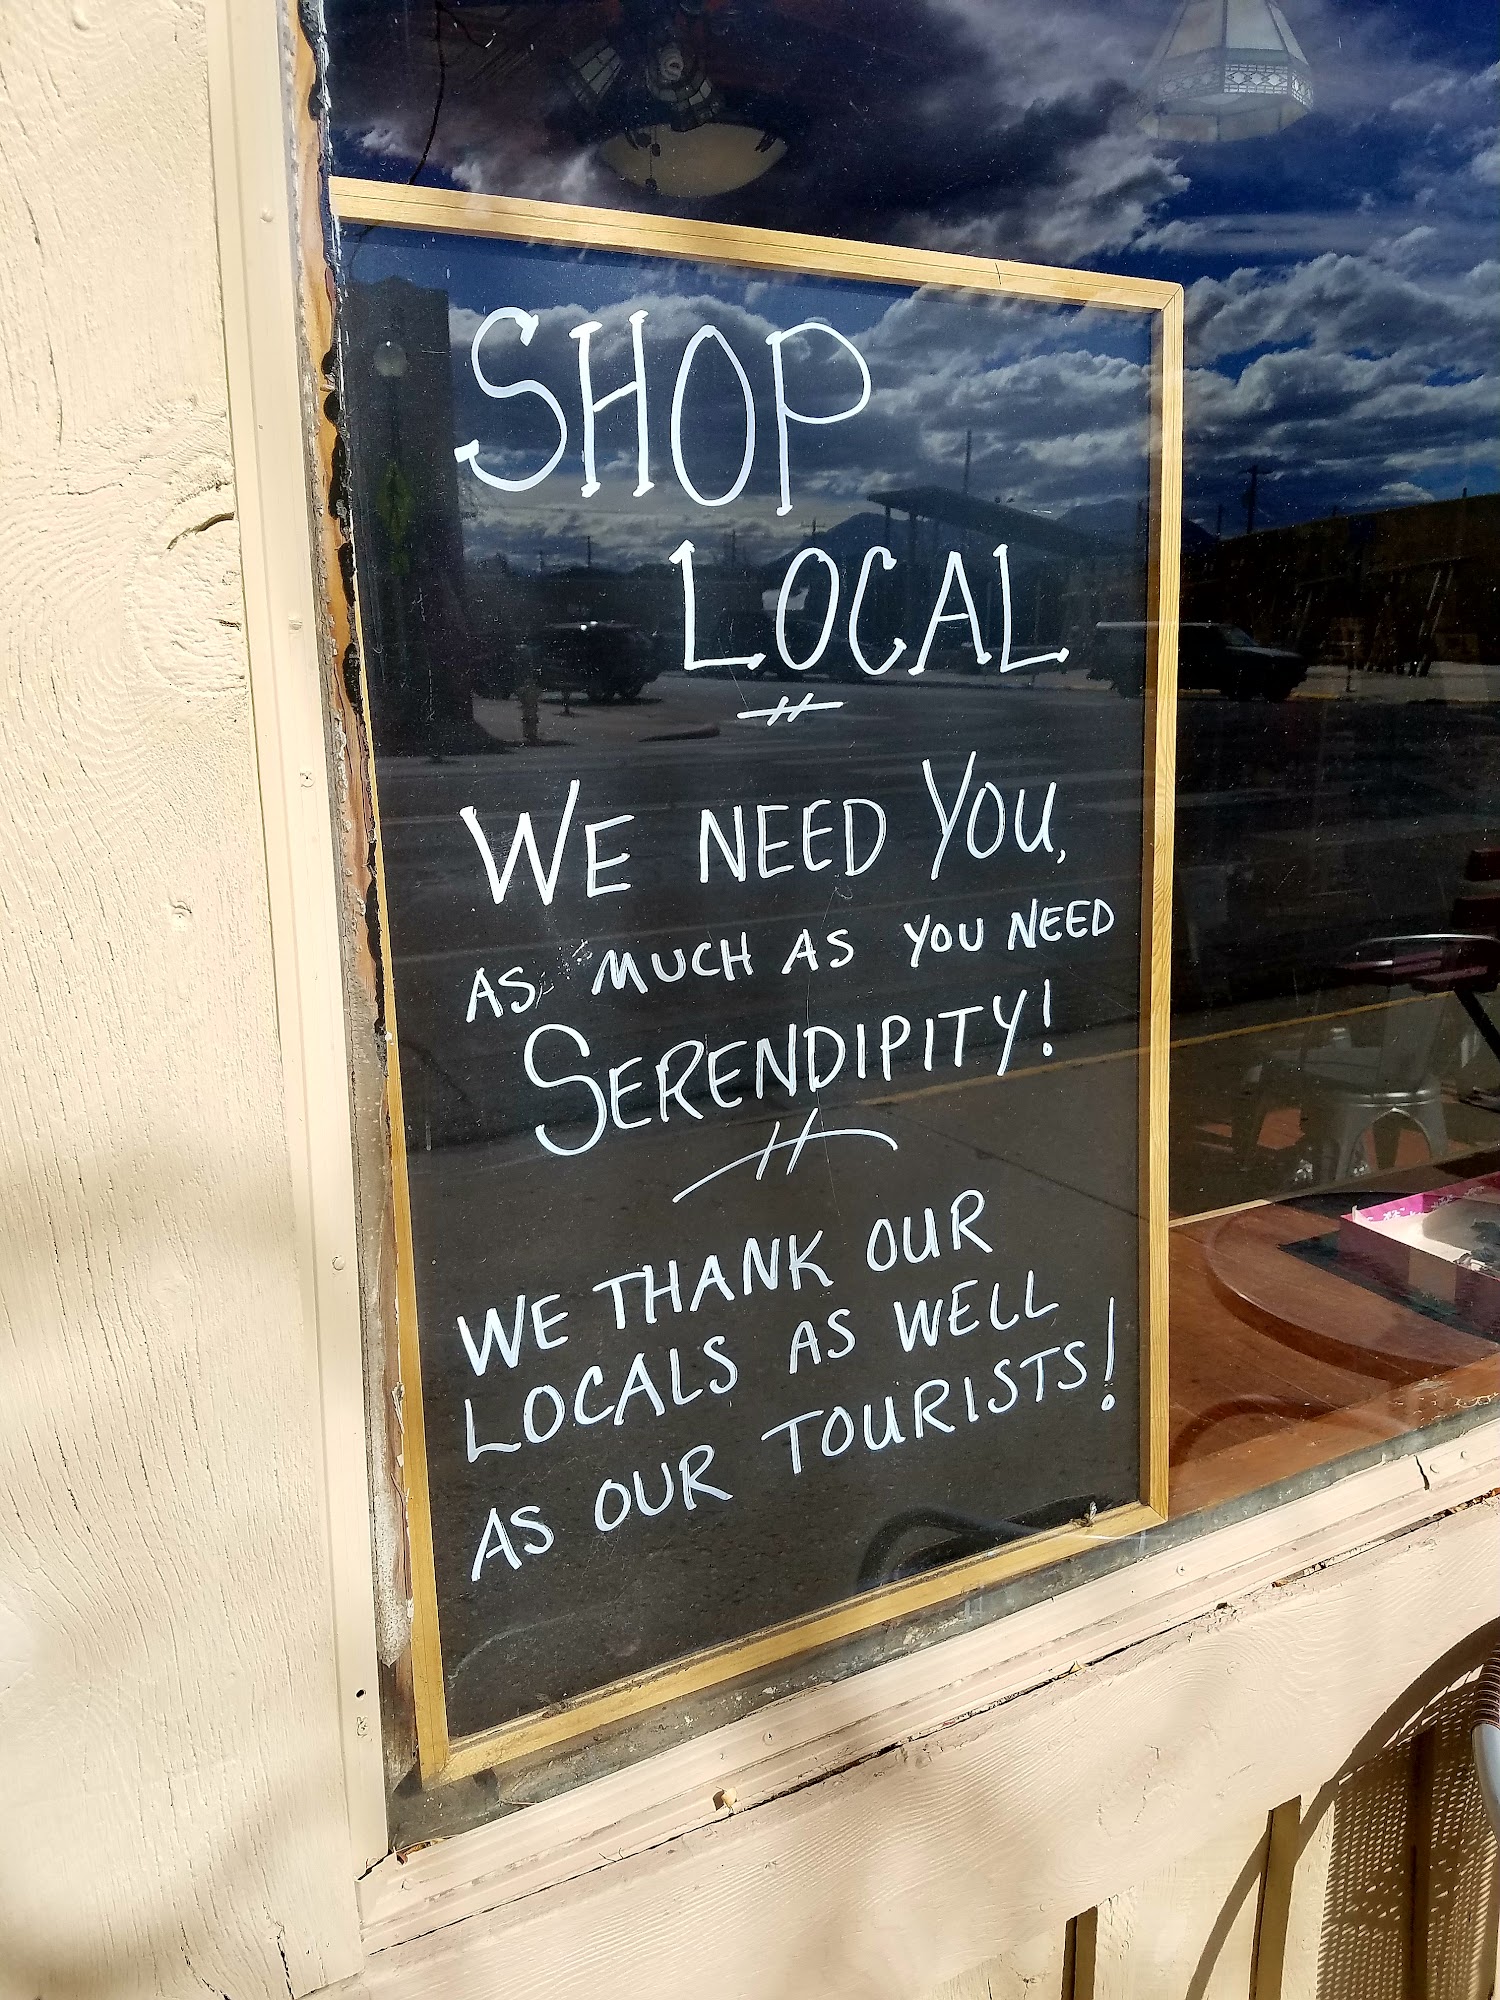 SHOP
LOCAL
WE NEED YOU,
AS MUCH AS YOU NEED
SERENDIPITY!
WE THANK OUR
LOCALS AS WELL
AS OUR TOURISTS!